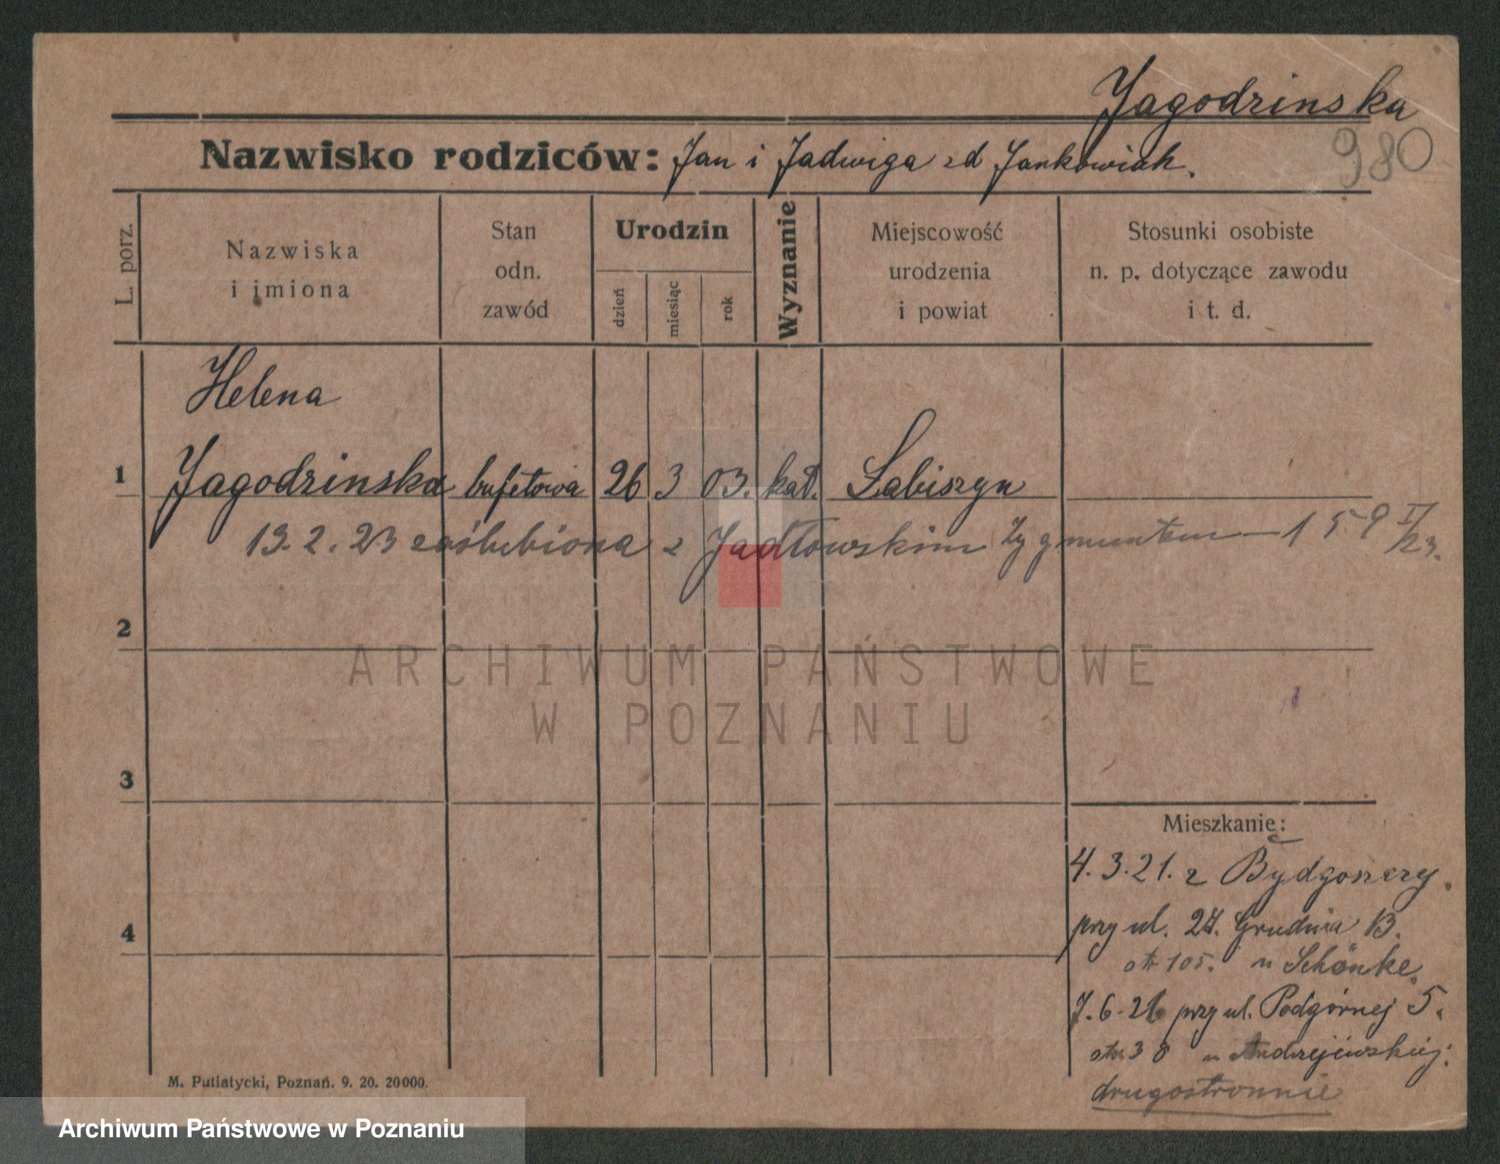 Jagodzinska
980
Nazwisko rodziców: Jan i Jadwiga zd Jankowiak.
L. porz.
Nazwiska
i imiona
Stan
odn.
zawód
Urodzin
dzień
miesiąc
rok
Wyznanie
Miejscowość
urodzenia
i powiat
Stosunki osobiste
n. p. dotyczące zawodu
i t. d.
Helena
1 Jagodzinska bufetowa 26 3 03. kat. Łabiszyn
19.2.23 zaślubiona z Jadłowskim Zygmuntem — 159 II/23.
2
3
4
Mieszkanie:
4.3.21. z Bydgoszczy.
przy ul. 27. Grudnia 13.
str 105. u Schönke.
7.6.21 przy ul. Podgórnej 5.
str. 38 u Andrzejewskiej.
drugostronnie
M. Putiatycki, Poznań. 9. 20. 20000.
ARCHIWUM PAŃSTWOWE
W POZNANIU
Archiwum Państwowe w Poznaniu